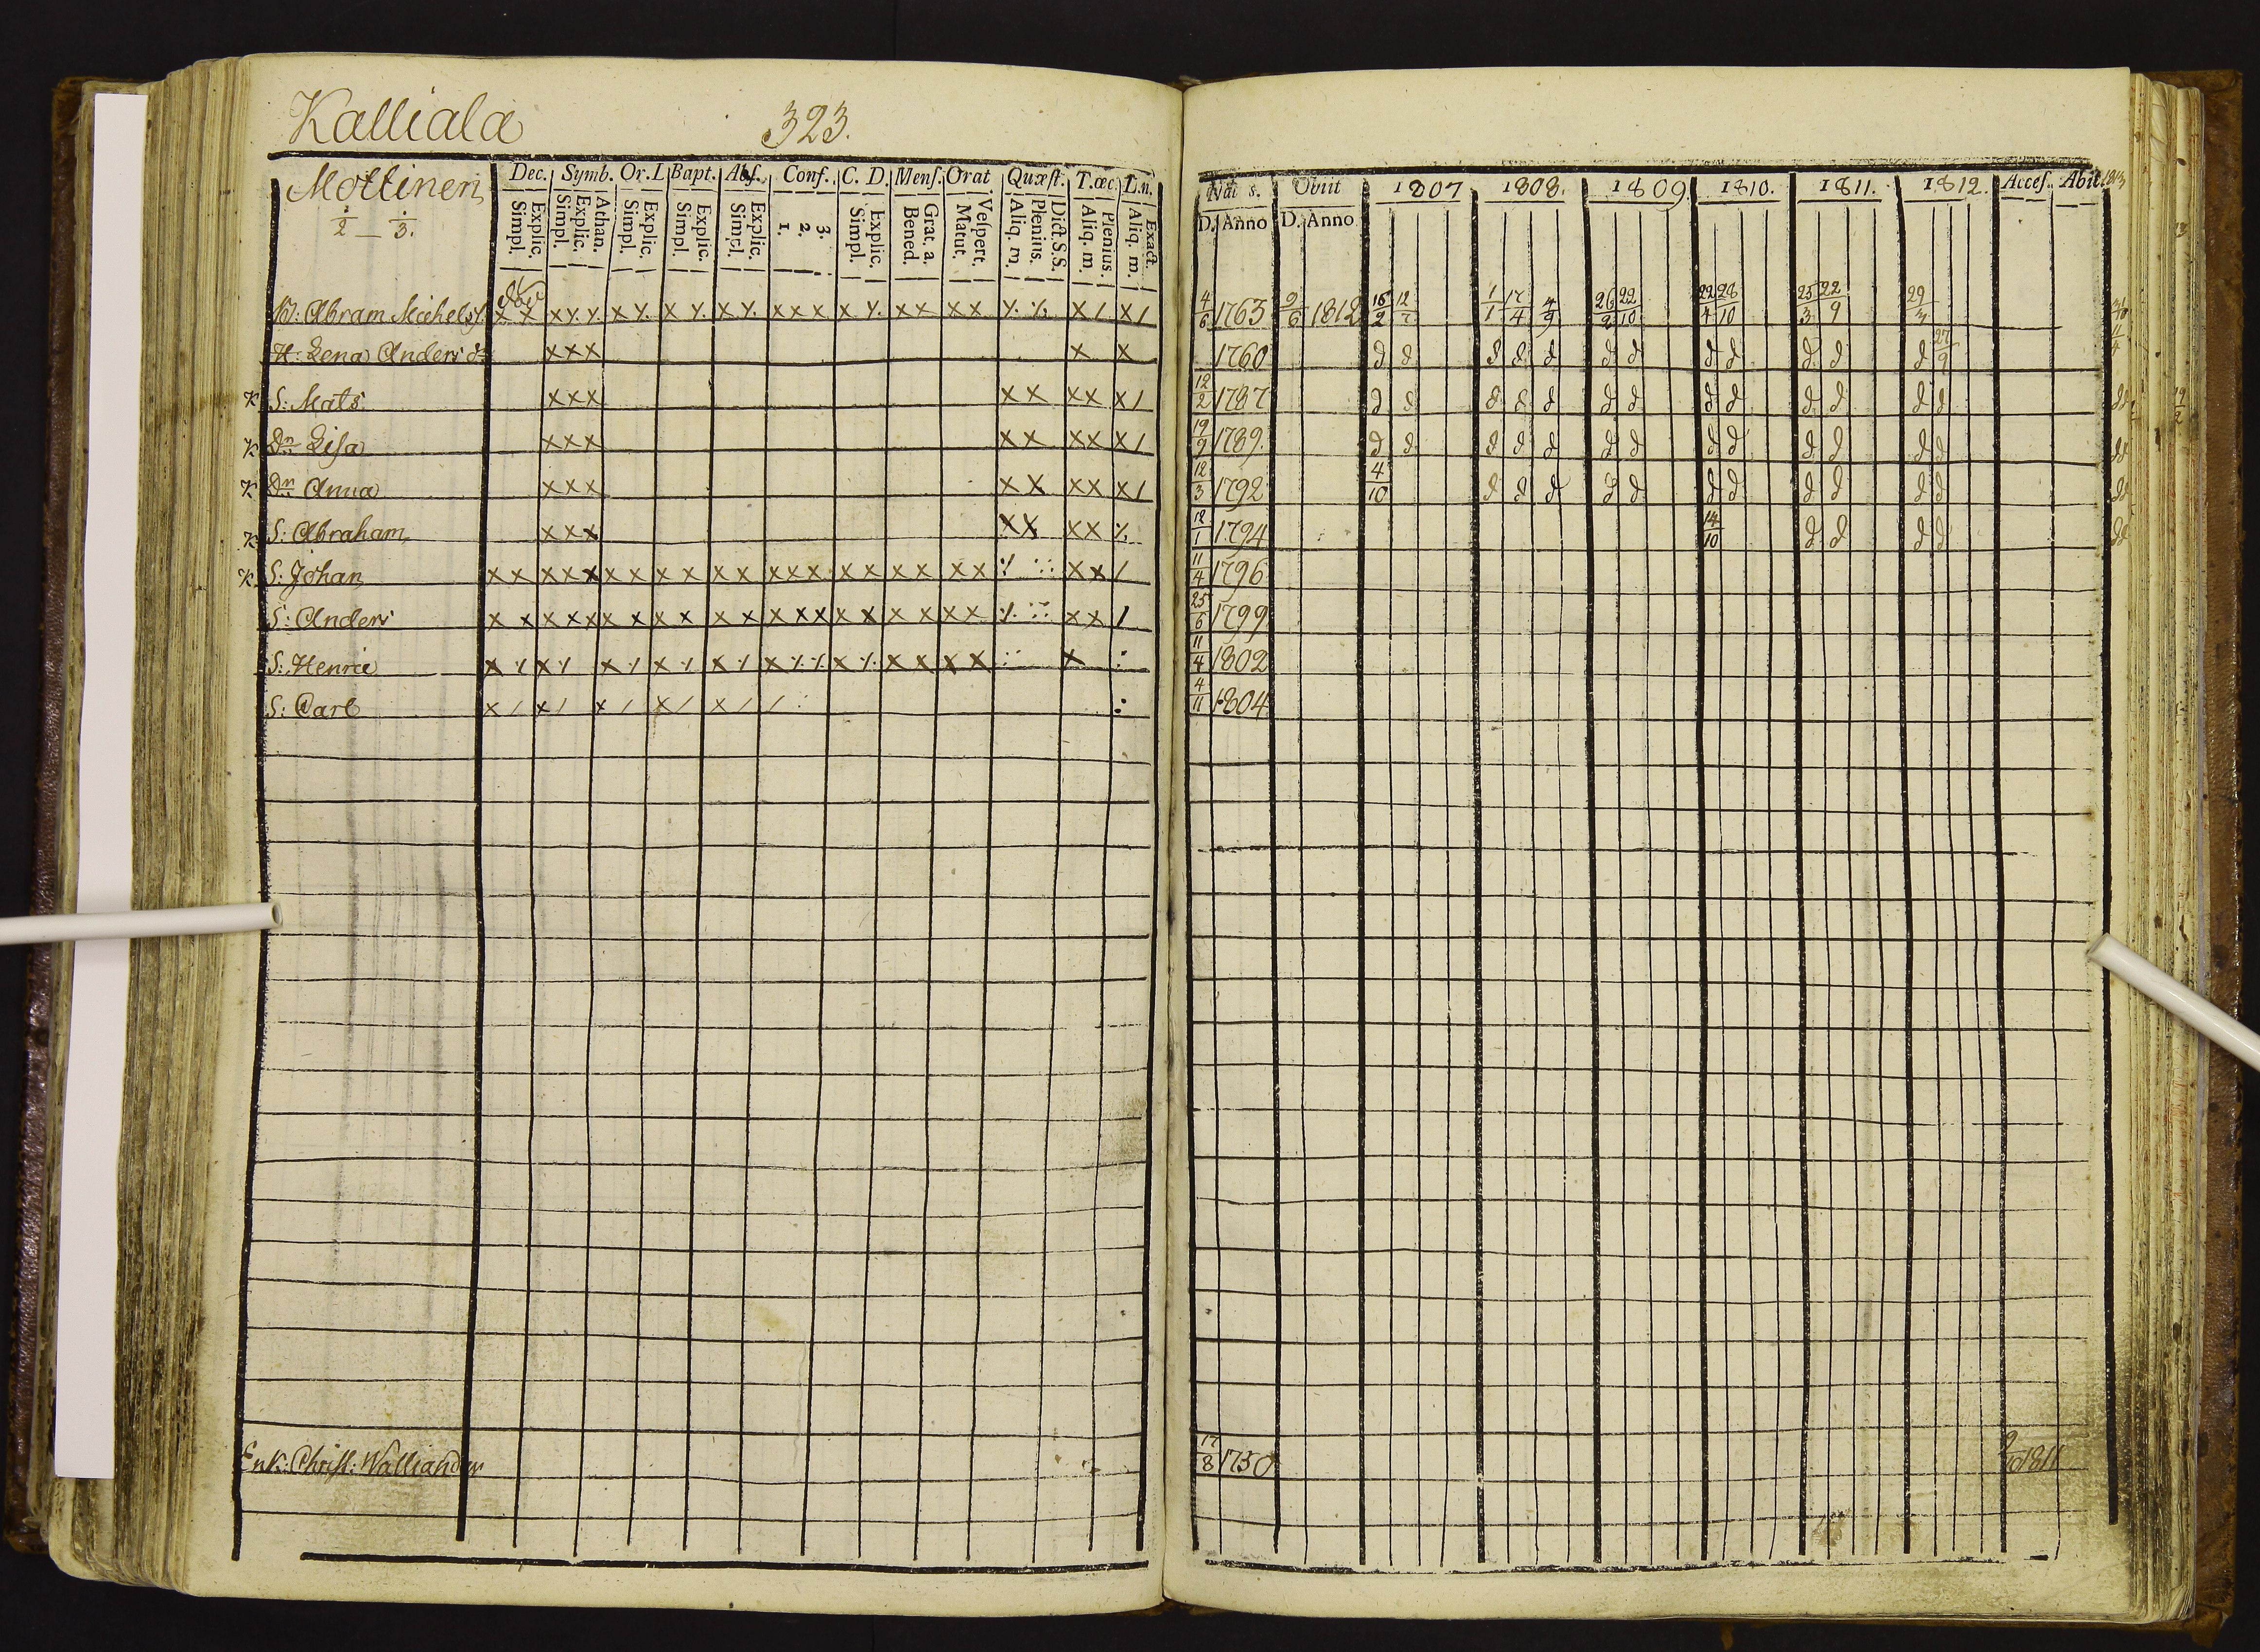 Kalliala 323.
Mottinen Dec. Symb. Or. L. Bapt. Abs. Conf. C. D. Mens. Orat. Quæst. T. œc. L. n.
2 — 3.
Explic. Simpl. Athan. Explic. Simpl. Explic. Simpl. Explic. Simpl. Explic. Simpl. 3. 2. 1. Explic. Simpl. Grat. a. Bened. Vespert. Matut. Dict. S. S. Plenius. Aliq. m. Plenius. Aliq. m. Exact. Aliq. m.
B: Abram Michelss.
H: Lena Anders dr
K S: Mats
K Dr Lisa
K Dr Anna
K S: Abraham
K S: Johan
S: Anders
S: Henric
S: Carl
Enk: Christ: Walliander
Nat s. Obiit 1807 1808. 1809. 1810. 1811. 1812. Acces. Abiit. 1813
D. Anno D. Anno
4/6 1763 9/6 1812 15/2 12/7 1/1 17/4 4/9 26/2 22/10 22/4 28/10 25/3 22/9 29/3
1760 d d d d d d d d d d d d 27/9
12/2 1787 d d d d d d d d d d d d d
19/9 1789. d d d d d d d d d d d d d
12/3 1792 4/10 d d d d d d d d d d d
12/1 1794 14/10 d d d d
11/4 1796
25/6 1799
11/4 1802
4/11 1804
17/8 1750 9/10 1811